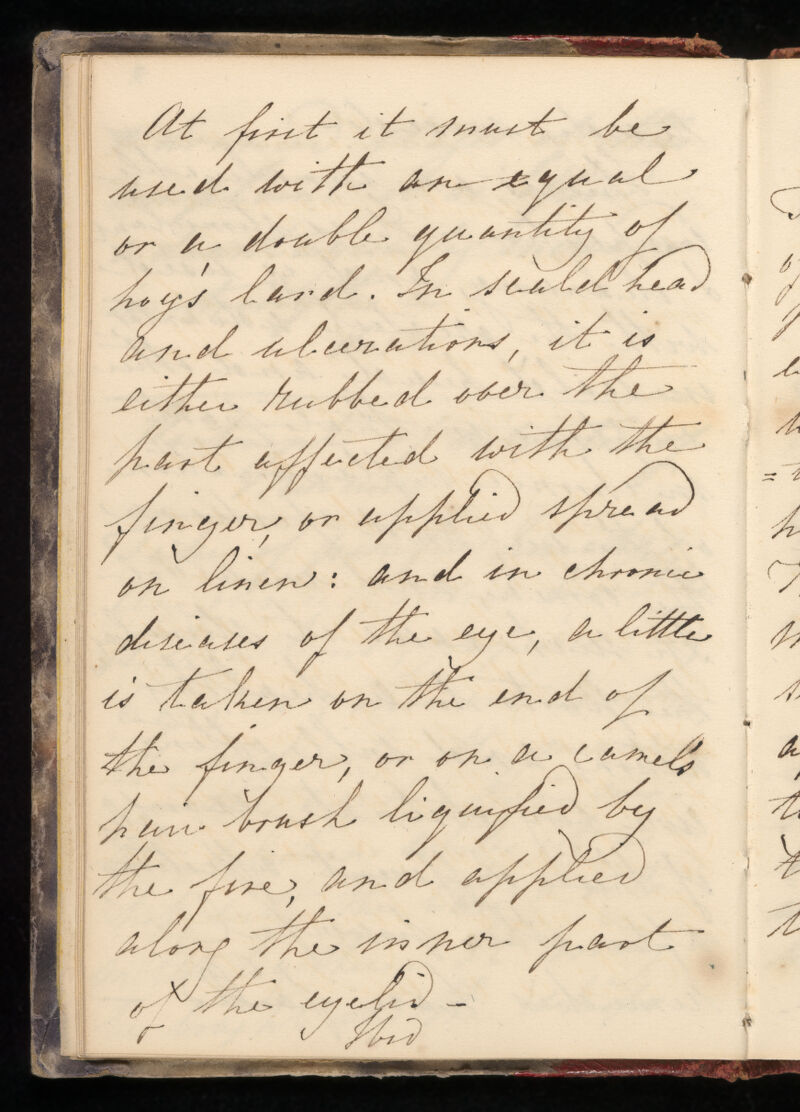 At first it must be
used with an equal
or a double quantity of
hog's lard. In scald head
and ulcerations, it is
either rubbed over the
part affected with the
finger, or applied spread
on linen: and in chronic
diseases of the eye, a little
is taken on the end of
the finger, or on a camels
hair brush liquified by
the fire, and applied
along the inner part
of the eyelid -
Ibid